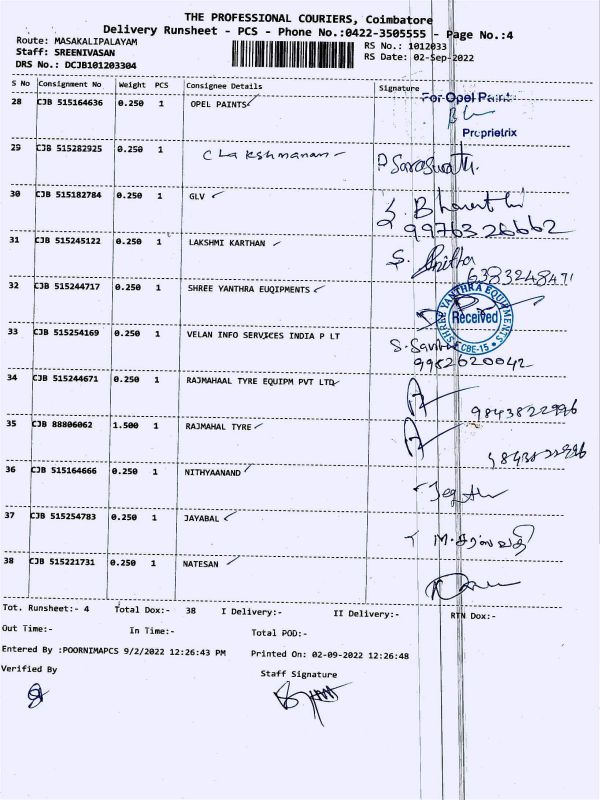 THE PROFESSIONAL COURIERS, Coimbatore
Delivery Runsheet - PCS - Phone No.:0422-3505555 - Page No.:4
Route: MASAKALIPALAYAM
RS No.: 1012033
Staff: SREENIVASAN
RS Date: 02-Sep-2022
DRS No.: DCJB101203304
S No Consignment No Weight PCS Consignee Details Signature
28 CJB 515164636 0.250 1 OPEL PAINTS
For Opel Paint
Proprietrix
29 CJB 515282925 0.250 1 C Lakshmanan P. Saraswathi.
30 CJB 515182784 0.250 1 GLV S. Bharathi
9976326662
31 CJB 515245122 0.250 1 LAKSHMI KARTHAN S. Anitha
6383248471
32 CJB 515244717 0.250 1 SHREE YANTHRA EUQIPMENTS
SHREE YANTHRA EQUIPMENTS
Received
CBE-15
33 CJB 515254169 0.250 1 VELAN INFO SERVICES INDIA P LT
9952620042
34 CJB 515244671 0.250 1 RAJMAHAAL TYRE EQUIPM PVT LTD
9843822996
35 CJB 88806062 1.500 1 RAJMAHAL TYRE
9843822996
36 CJB 515164666 0.250 1 NITHYAANAND
37 CJB 515254783 0.250 1 JAYABAL M.சரஸ்வதி
38 CJB 515221731 0.250 1 NATESAN
Tot. Runsheet:- 4 Total Dox:- 38 I Delivery:- II Delivery:- RTN Dox:-
Out Time:- In Time:- Total POD:-
Entered By :POORNIMAPCS 9/2/2022 12:26:43 PM Printed On: 02-09-2022 12:26:48
Verified By Staff Signature